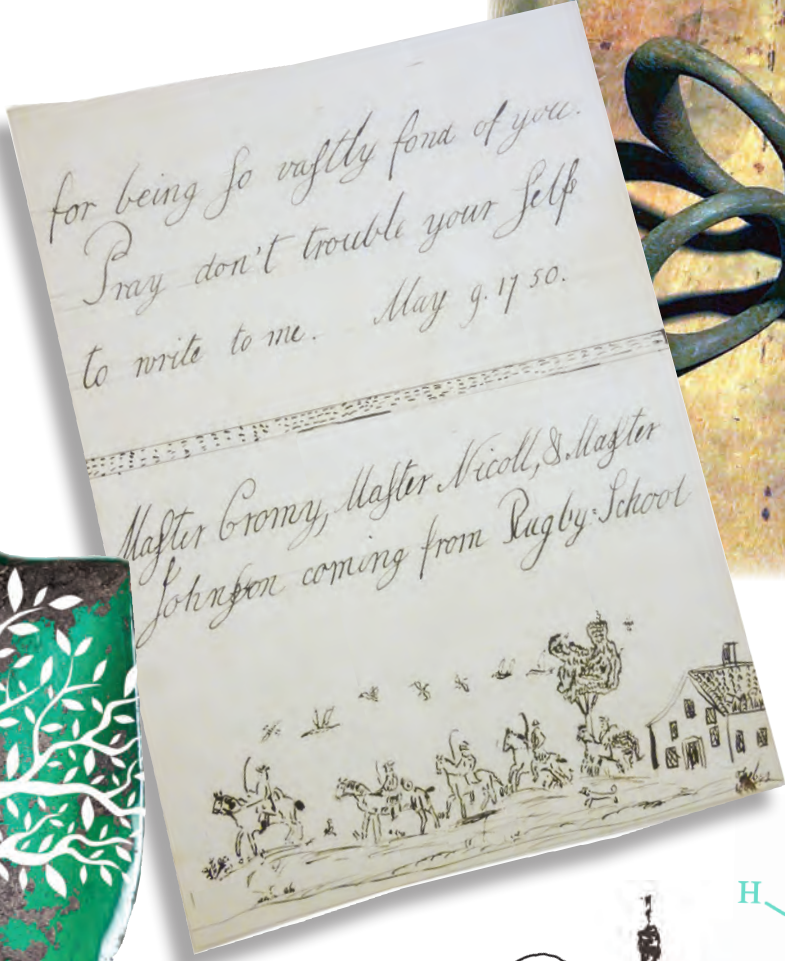 for being ſo vaſtly fond of you.
Pray don't trouble your Self
to write to me. May 9. 1750.
Maſter Cromy, Maſter Nicoll, & Maſter
Johnſon coming from Rugby=School
H